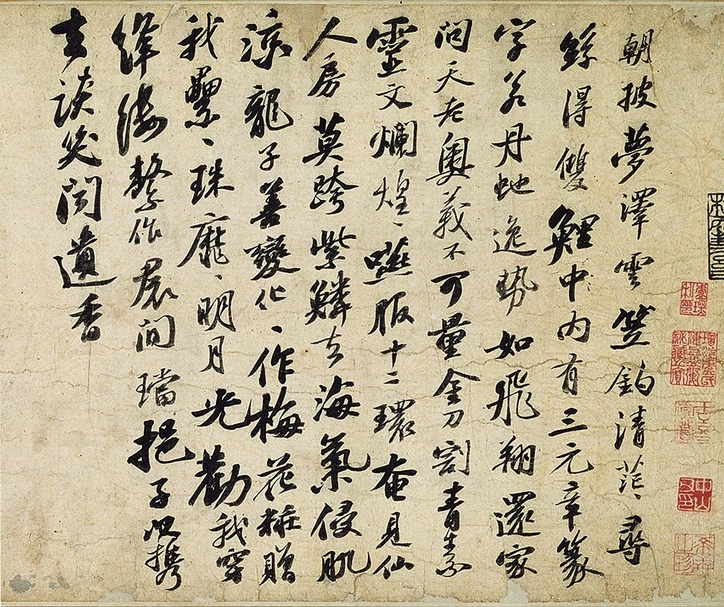 朝披夢澤雲笠釣清茫〻尋
絲得雙鯉中內有三元章篆
字若丹虵逸勢如飛翔還家
問天老奧義不可量金刀割青素
靈文爛煌〻嚥服十二環奄見仙
人房莫跨紫鱗去海氣侵肌
涼龍子善變化〻作梅花粧贈
我纍〻珠靡〻明月光勸我穿
絳縷繫作裙間璫挹子以携
去談笑聞遺香